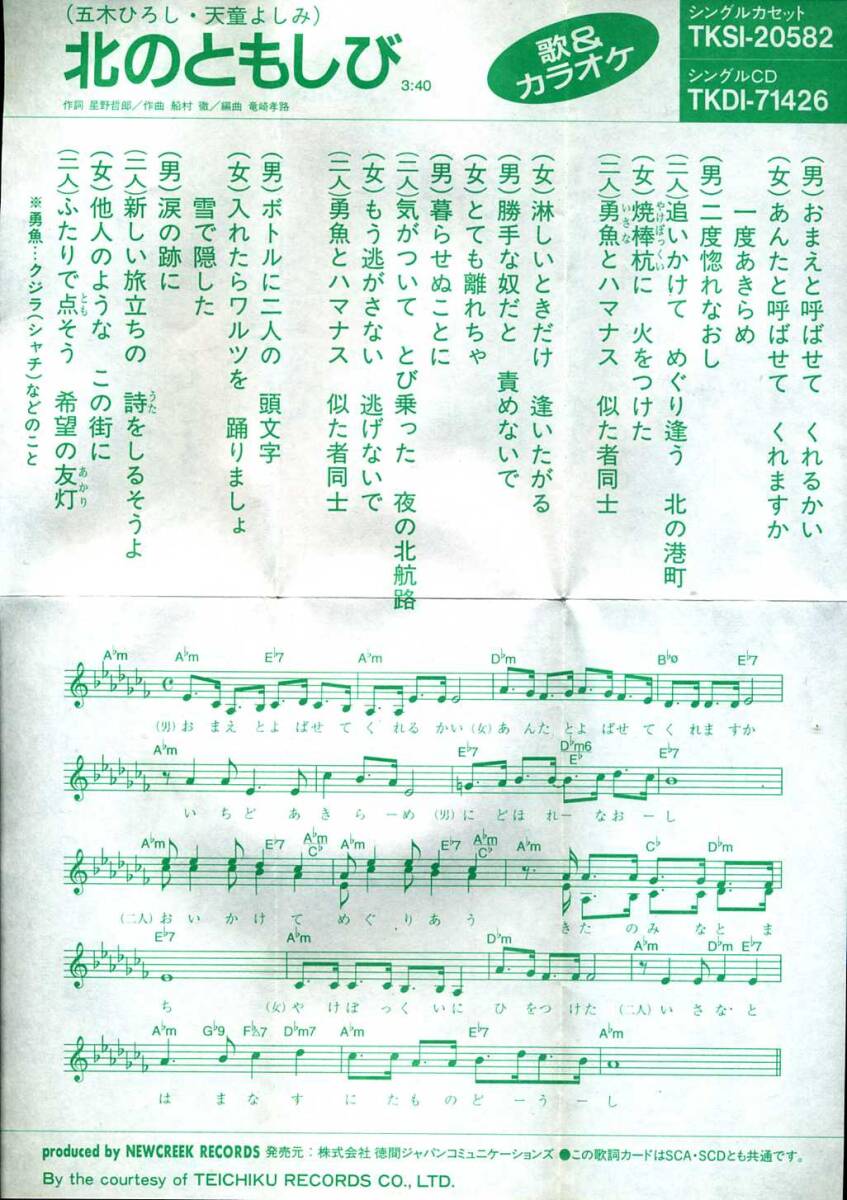 （五木ひろし・天童よしみ）
北のともしび 3:40
作詞 星野哲郎／作曲 船村 徹／編曲 竜崎孝路
歌&
カラオケ
シングルカセット
TKSI-20582
シングルCD
TKDI-71426
（男）おまえと呼ばせて くれるかい
（女）あんたと呼ばせて くれますか
一度あきらめ
（男）二度惚れなおし
（二人）追いかけて めぐり逢う 北の港町
（女）焼棒杭に 火をつけた
やけぼっくい
（二人）勇魚とハマナス 似た者同士
いさな
（女）淋しいときだけ 逢いたがる
（男）勝手な奴だと 責めないで
（女）とても離れちゃ
（男）暮らせぬことに
（二人）気がついて とび乗った 夜の北航路
（女）もう逃がさない 逃げないで
（二人）勇魚とハマナス 似た者同士
（男）ボトルに二人の 頭文字
（女）入れたらワルツを 踊りましょ
雪で隠した
（男）涙の跡に
（二人）新しい旅立ちの 詩をしるそうよ
うた
（女）他人のような この街に
（二人）ふたりで点そう 希望の友灯
とも
あかり
※勇魚…クジラ（シャチ）などのこと
A♭m A♭m E♭7 A♭m D♭m B♭ø E♭7
（男）おまえとよばせてくれるかい（女）あんたとよばせてくれますか
A♭m E♭7 D♭m6/E♭ E♭7
いちどあきらーめ（男）にどほれーなおーし
A♭m E♭7 A♭m/C♭ A♭m E♭7 A♭m/C♭ A♭m C♭ D♭m
（二人）おいかけてめぐりあう きたのみなとま
E♭7 A♭m D♭m A♭m D♭m E♭7
ち（女）やけぼっくいにひをつけた（二人）いさなと
A♭m G♭9 F♭△7 D♭m7 A♭m E♭7 A♭m
はまなすにたものどーうーし
produced by NEWCREEK RECORDS 発売元：株式会社 徳間ジャパンコミュニケーションズ ●この歌詞カードはSCA・SCDとも共通です。
By the courtesy of TEICHIKU RECORDS CO., LTD.